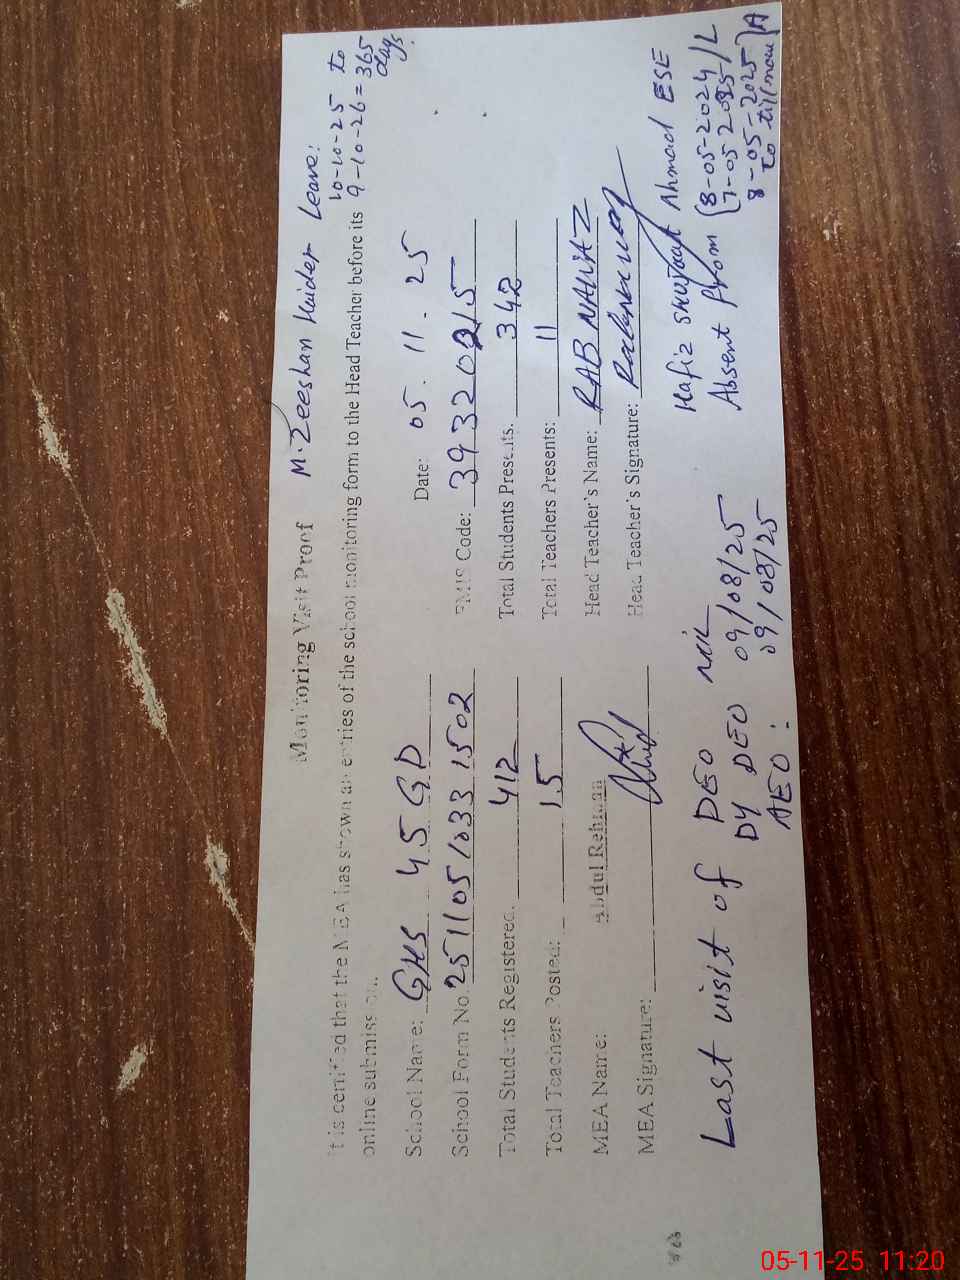 M. Zeeshan Haider Leave:
10-10-25 to
9-10-26 = 365
days
Monitoring Visit Proof
It is certified that the MEA has shown all entries of the school monitoring form to the Head Teacher before its
online submission.
School Name: GHS 45 GD Date: 05.11.25
School Form No. 25110510331502 EMIS Code: 39320215
Total Students Registered. 412 Total Students Presents. 342
Total Teachers Posted: 15 Total Teachers Presents: 11
MEA Name: Abdul Rehman Head Teacher's Name: RAB NAWAZ
MEA Signature: Head Teacher's Signature: Rabnawaz
Hafiz Shujaat Ahmad ESE
Absent from (8-05-2024 / L
7-05-2025
8-05-2025
to till now) A
Last visit of DEO NIL
DY DEO 09/08/25
AEO: 09/08/25
05-11-25 11:20